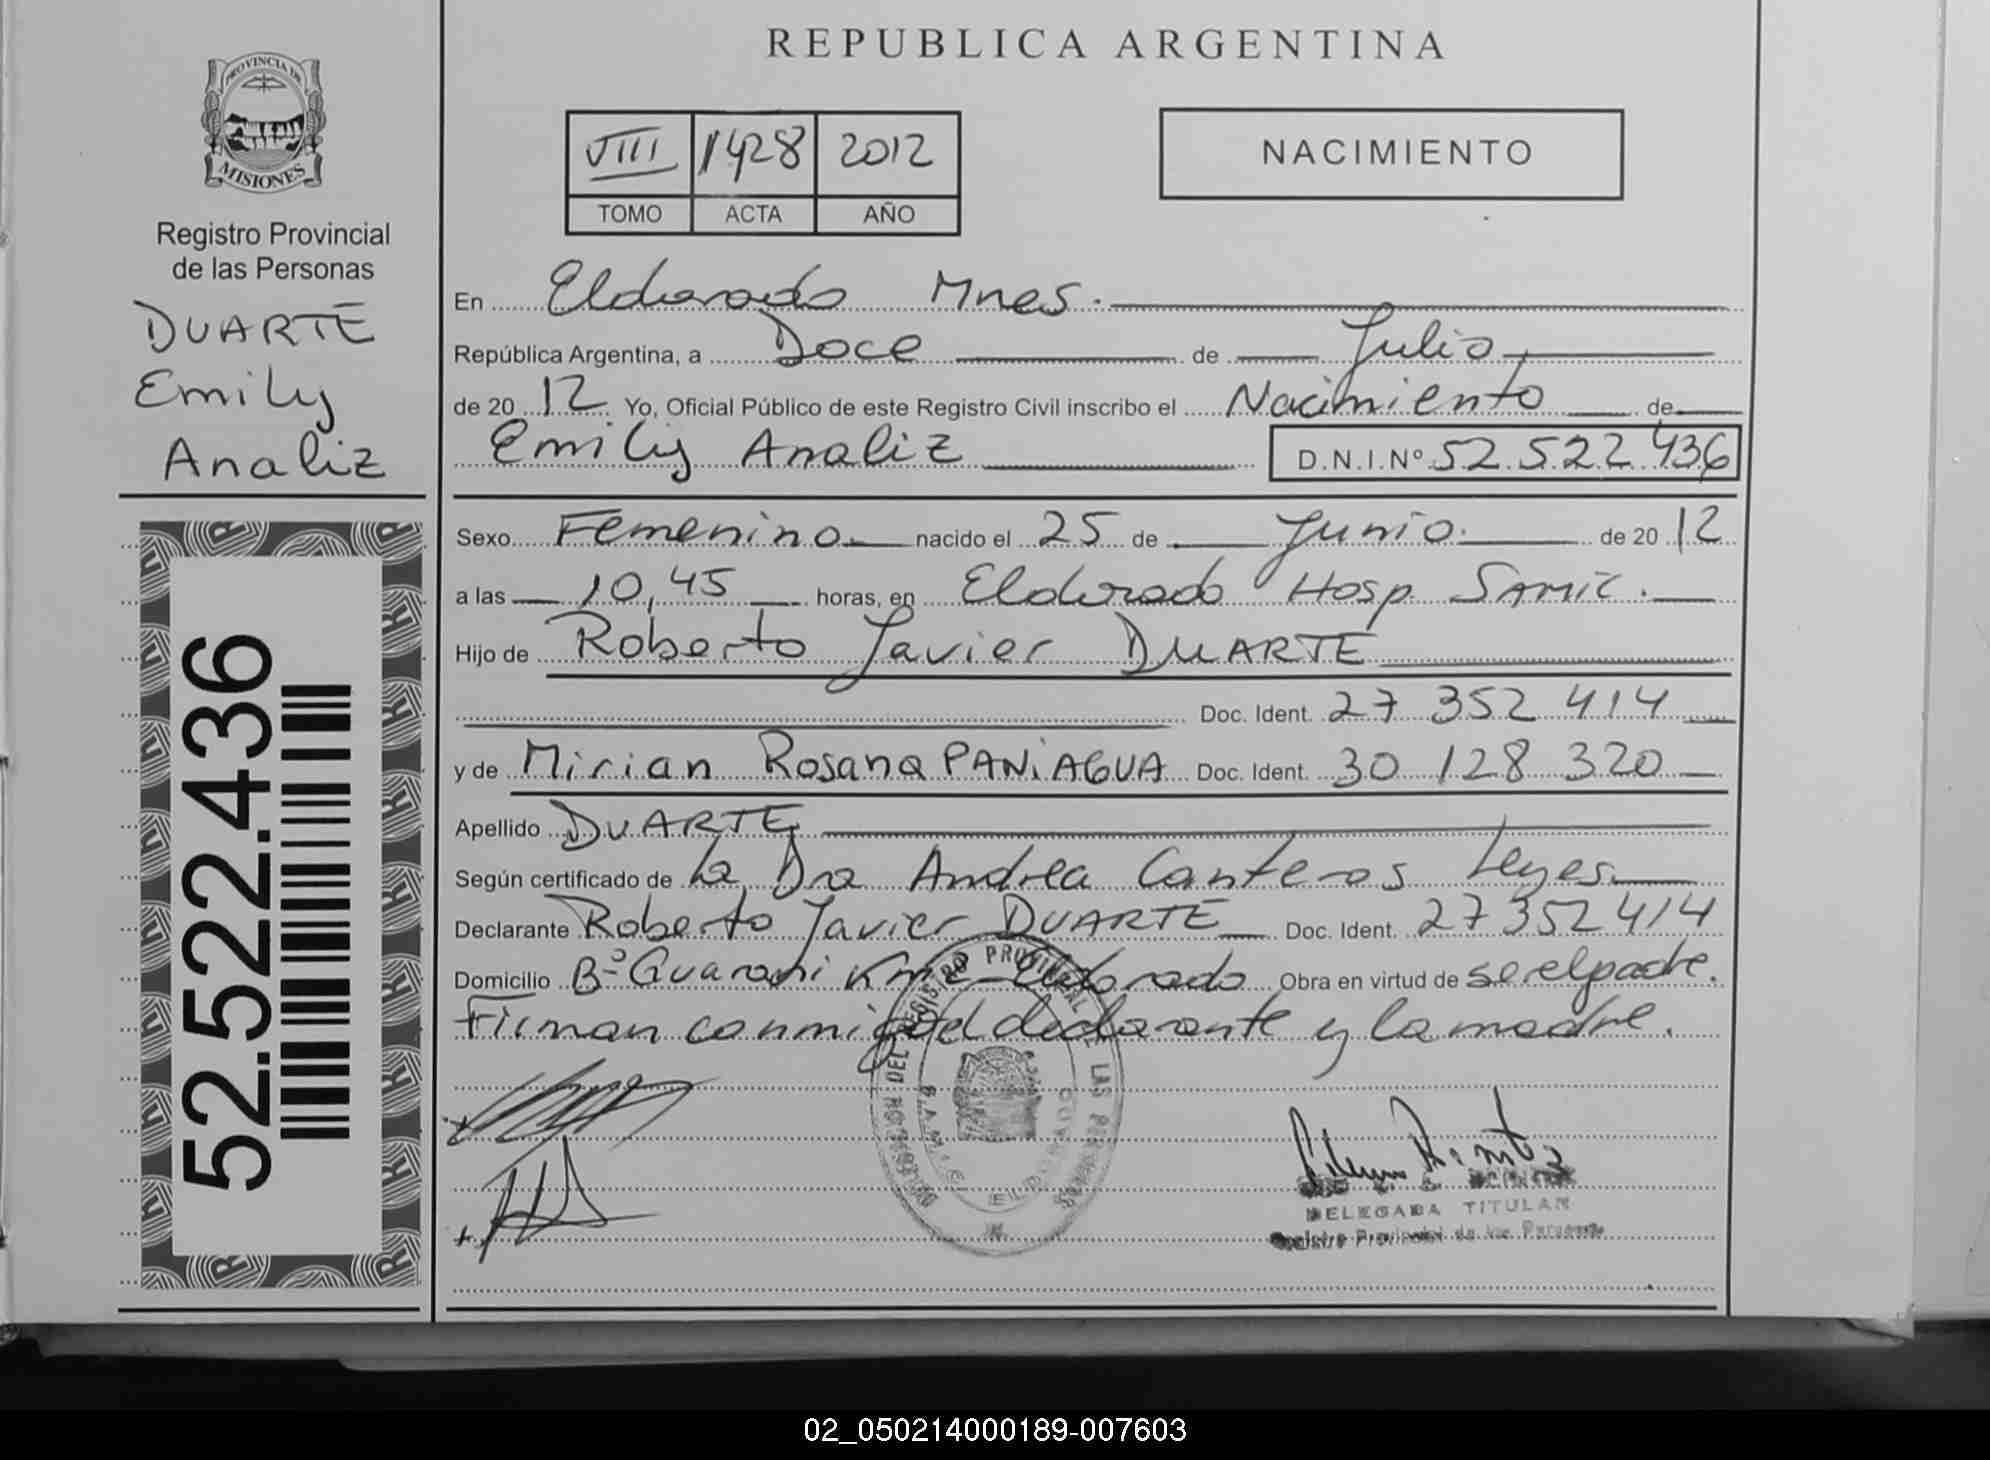 PROVINCIA DE
MISIONES
Registro Provincial
de las Personas
DUARTE
Emily
Analiz
52.522.436
REPUBLICA ARGENTINA
VIII 1428 2012
TOMO ACTA AÑO
NACIMIENTO
En Eldorado Mnes.
República Argentina, a Doce de Julio
de 20 12 Yo, Oficial Público de este Registro Civil inscribo el Nacimiento de
Emily Analiz D.N.I.Nº 52.522.436
Sexo Femenino nacido el 25 de Junio de 20 12
a las 10,45 horas, en Eldorado Hosp. SAMIC.
Hijo de Roberto Javier DUARTE
Doc. Ident. 27 352 414
y de Mirian Rosana PANiAGUA Doc. Ident. 30 128 320
Apellido DUARTE
Según certificado de La Dra Andrea Canteros
Declarante Roberto Javier DUARTE Doc. Ident. 27 352 414
Domicilio Bº Guarani Km 2 - Eldorado Obra en virtud de ser el padre.
Firman conmigo el declarante y la madre.
DELEGADA TITULAR
Registro Provincial de las Personas
02_050214000189-007603